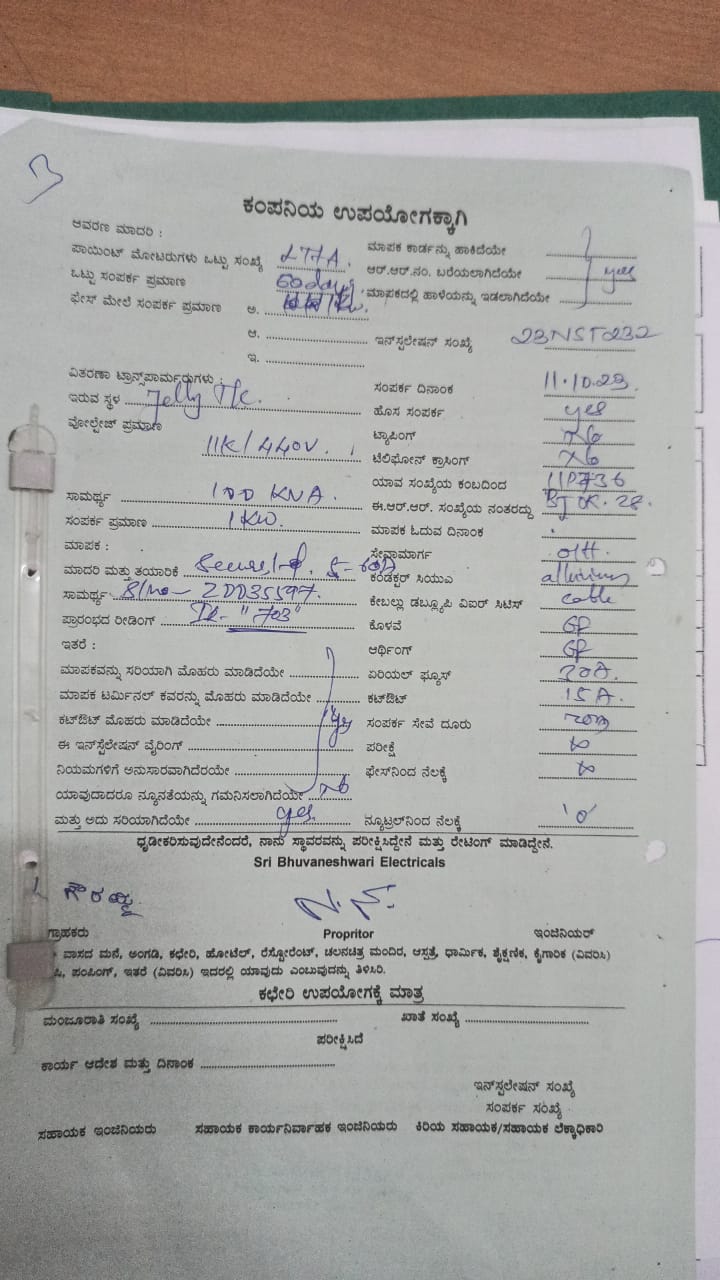 ಕಂಪನಿಯ ಉಪಯೋಗಕ್ಕಾಗಿ
ಆವರಣ ಮಾದರಿ :
ಪಾಯಿಂಟ್ ಮೋಟರುಗಳು ಒಟ್ಟು ಸಂಖ್ಯೆ ಮಾಪಕ ಕಾರ್ಡನ್ನು ಹಾಕಿದೆಯೇ
ಒಟ್ಟು ಸಂಪರ್ಕ ಪ್ರಮಾಣ 60 days ಆರ್.ಆರ್.ನಂ. ಬರೆಯಲಾಗಿದೆಯೇ yes
ಫೇಸ್ ಮೇಲೆ ಸಂಪರ್ಕ ಪ್ರಮಾಣ ಅ. ಮಾಪಕದಲ್ಲಿ ಹಾಳೆಯನ್ನು ಇಡಲಾಗಿದೆಯೇ
ಆ. ಇನ್‌ಸ್ಟಲೇಷನ್ ಸಂಖ್ಯೆ 23NST232
ಇ.
ವಿತರಣಾ ಟ್ರಾನ್ಸ್‌ಪಾರ್ಮರುಗಳು : ಸಂಪರ್ಕ ದಿನಾಂಕ 11.10.23.
ಇರುವ ಸ್ಥಳ Jelly Tc. ಹೊಸ ಸಂಪರ್ಕ yes
ವೋಲ್ಟೇಜ್ ಪ್ರಮಾಣ ಟ್ಯಾಪಿಂಗ್ No
11K/440V. ಟೆಲಿಫೋನ್ ಕ್ರಾಸಿಂಗ್ No
ಯಾವ ಸಂಖ್ಯೆಯ ಕಂಬದಿಂದ
ಸಾಮರ್ಥ್ಯ 100 KVA. ಈ.ಆರ್.ಆರ್. ಸಂಖ್ಯೆಯ ನಂತರದ್ದು
ಸಂಪರ್ಕ ಪ್ರಮಾಣ 1KW. ಮಾಪಕ ಓದುವ ದಿನಾಂಕ
ಮಾಪಕ : ಸೇವಾಮಾರ್ಗ O/H.
ಮಾದರಿ ಮತ್ತು ತಯಾರಿಕೆ ಕಂಡಕ್ಟರ್ ಸಿಯುಎ
ಸಾಮರ್ಥ್ಯ S/no- ಕೇಬಲ್ಲು ಡಬ್ಲ್ಯೂಪಿ ವಿಐರ್ ಸಿಟಿಸ್ cable
ಪ್ರಾರಂಭದ ರೀಡಿಂಗ್ IR- "703" ಕೊಳವೆ GP
ಇತರೆ : ಆರ್ಥಿಂಗ್ GP
ಮಾಪಕವನ್ನು ಸರಿಯಾಗಿ ಮೊಹರು ಮಾಡಿದೆಯೇ ಏರಿಯಲ್ ಫ್ಯೂಸ್ 30A.
ಮಾಪಕ ಟರ್ಮಿನಲ್ ಕವರನ್ನು ಮೊಹರು ಮಾಡಿದೆಯೇ ಕಟ್‌ಔಟ್ 15A.
ಕಟ್‌ಔಟ್ ಮೊಹರು ಮಾಡಿದೆಯೇ yes ಸಂಪರ್ಕ ಸೇವೆ ದೂರು 20m
ಈ ಇನ್‌ಸ್ಟೆಲೇಷನ್ ವೈರಿಂಗ್ ಪರೀಕ್ಷೆ ∞
ನಿಯಮಗಳಿಗೆ ಅನುಸಾರವಾಗಿದೆರಯೇ ಫೇಸ್‌ನಿಂದ ನೆಲಕ್ಕೆ ∞
ಯಾವುದಾದರೂ ನ್ಯೂನತೆಯನ್ನು ಗಮನಿಸಲಾಗಿದೆಯೇ No
ಮತ್ತು ಅದು ಸರಿಯಾಗಿದೆಯೇ yes ನ್ಯೂಟ್ರಲ್‌ನಿಂದ ನೆಲಕ್ಕೆ '0'
ಧೃಡೀಕರಿಸುವುದೇನೆಂದರೆ, ನಾನು ಸ್ಥಾವರವನ್ನು ಪರೀಕ್ಷಿಸಿದ್ದೇನೆ ಮತ್ತು ರೇಟಿಂಗ್ ಮಾಡಿದ್ದೇನೆ.
Sri Bhuvaneshwari Electricals
ಗೌರಮ್ಮ
ಗ್ರಾಹಕರು Propritor ಇಂಜಿನಿಯರ್
ವಾಸದ ಮನೆ, ಅಂಗಡಿ, ಕಛೇರಿ, ಹೋಟೆಲ್, ರೆಸ್ಟೋರೆಂಟ್, ಚಲನಚಿತ್ರ ಮಂದಿರ, ಆಸ್ಪತ್ರೆ, ಧಾರ್ಮಿಕ, ಶೈಕ್ಷಣಿಕ, ಕೈಗಾರಿಕ (ವಿವರಿಸಿ)
ಪಂಪಿಂಗ್, ಇತರೆ (ವಿವರಿಸಿ) ಇದರಲ್ಲಿ ಯಾವುದು ಎಂಬುವುದನ್ನು ತಿಳಿಸಿರಿ.
ಕಛೇರಿ ಉಪಯೋಗಕ್ಕೆ ಮಾತ್ರ
ಮಂಜೂರಾತಿ ಸಂಖ್ಯೆ ಖಾತೆ ಸಂಖ್ಯೆ
ಪರೀಕ್ಷಿಸಿದೆ
ಕಾರ್ಯ ಆದೇಶ ಮತ್ತು ದಿನಾಂಕ
ಇನ್‌ಸ್ಟಲೇಷನ್ ಸಂಖ್ಯೆ
ಸಂಪರ್ಕ ಸಂಖ್ಯೆ
ಸಹಾಯಕ ಇಂಜಿನಿಯರು ಸಹಾಯಕ ಕಾರ್ಯನಿರ್ವಾಹಕ ಇಂಜಿನಿಯರು ಕಿರಿಯ ಸಹಾಯಕ/ಸಹಾಯಕ ಲೆಕ್ಕಾಧಿಕಾರಿ